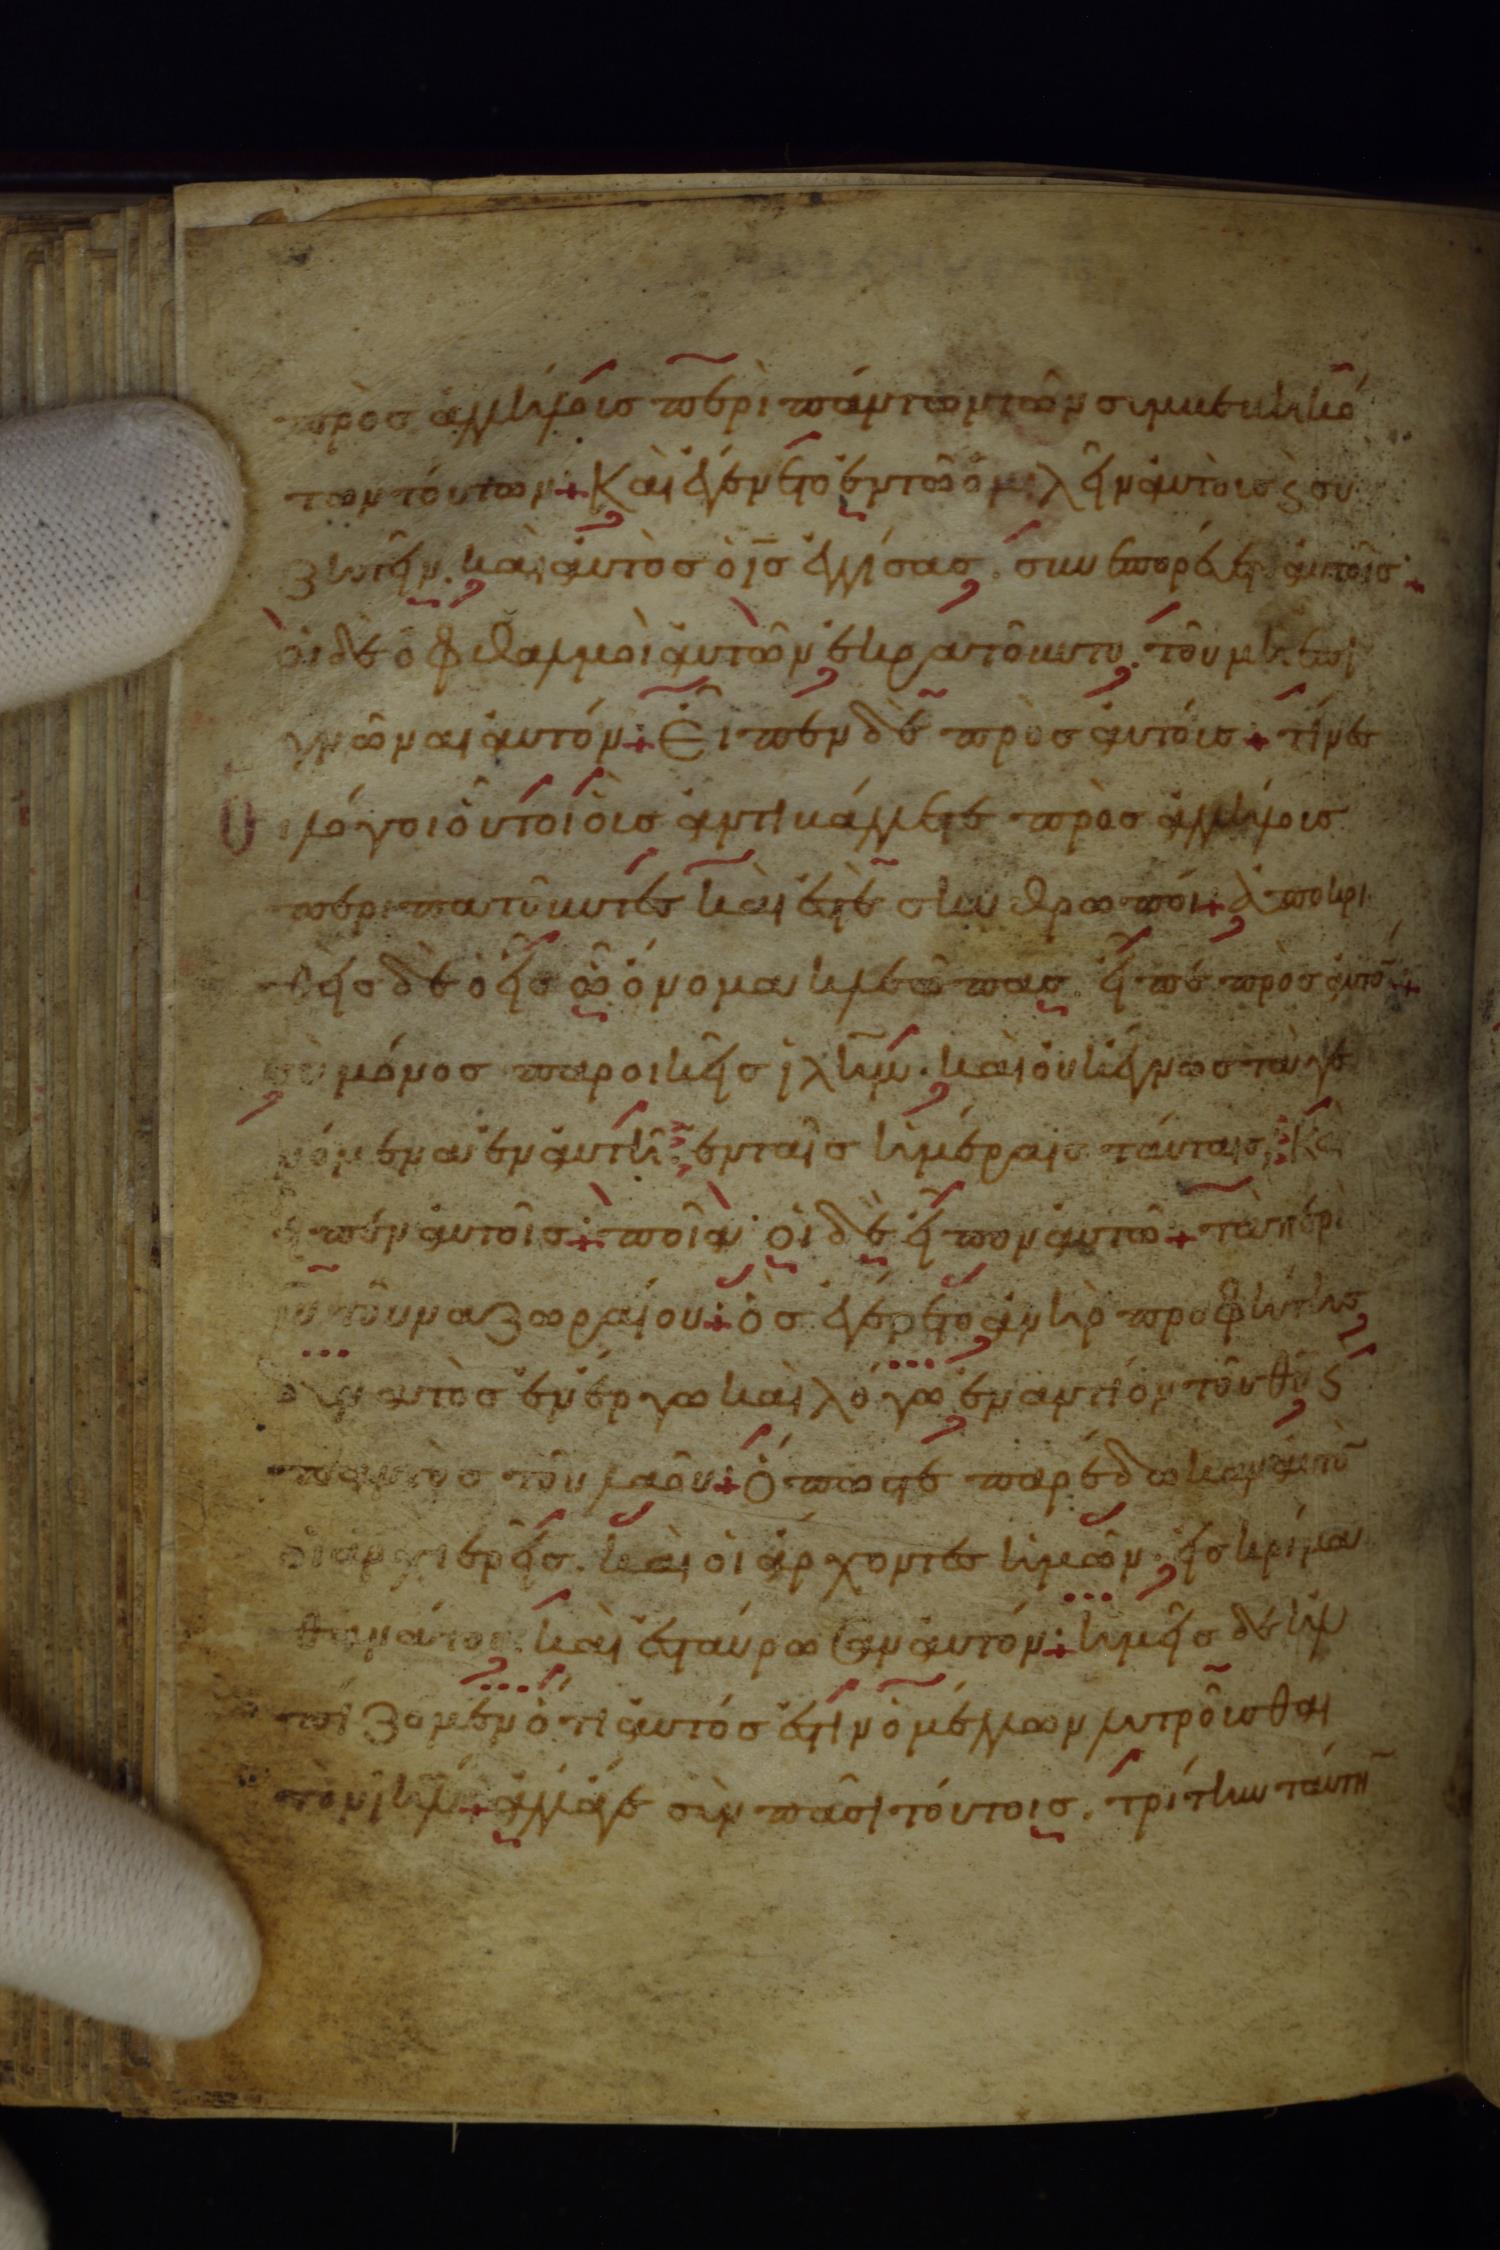 πρὸσ ἀλλήλοισ περὶ πάντων τῶν συμβεβηκό
των τούτων + Καὶ ἐγένετο ἐν τῶ ὁμιλῆν ἀυτοισ ϗ συ
ζητῆν. καὶ ἀυτὸσ ὁ ι̅σ̅ ἐγγίσασ. συνεπορέυετο ἀυτοῖσ +
ὁι δὲ ὀφθαλμοὶ ἀυτῶν ἐκρατοῦντο. τοῦ μὴ ἐπι
γνῶναι ἀυτόν + Εἶπεν δὲ πρὸσ ἀυτόυσ + τίνεσ
ὁι λόγοι ὁῦτοι ὁὺσ ἀντιβάλλετε πρὸσ ἀλλήλουσ
περιπατοῦντεσ καὶ ἐστὲ σκυθρωποί + ἀποκρι
θεὶσ δὲ ὁ εἷσ ὧ ὄνομα κλεώπασ. εἶπε πρὸσ ἀυτὸ̅ +
σὺ μόνοσ παροικεῖσ ι̅λ̅ημ̅. καὶ ὀυκ ἔγνωσ τὰ γε
νόμενα ἐν ἀυτῆ ἐν ταῖσ ἡμέραισ ταύταισ; Κὲ
εἶπεν ἀυτοῖσ + ποῖα; ὁι δὲ εἶπον ἀυτῶ + τὰ περὶ
ι̅υ̅ τοῦ ναζωραίου + ὃσ ἐγένετο ἀνὴρ προφήτησ
δυνατὸσ ἐν ἔργω καὶ λόγω ἐναντίον τοῦ θ̅υ̅ ϗ
παντὸσ τοῦ λαοῦ + Ὅπωσ τε παρέδωκαν ἀυτὸ̅
ὁι ἀρχιερεῖσ. καὶ ὁι ἄρχοντεσ ἡμῶν. εἰσ κρίμα
θανάτου. καὶ ἐσταύρωσαν ἀυτόν + ἡμεῖσ δὲ ἠλ
πίζομεν ὅτι ἀυτόσ ἐστιν ὁ μέλλων λυτροῦσθαι
τὸν ι̅η̅λ̅ + ἀλλάγε σὺν πᾶσι τούτοισ. τρίτην ταύτη̅